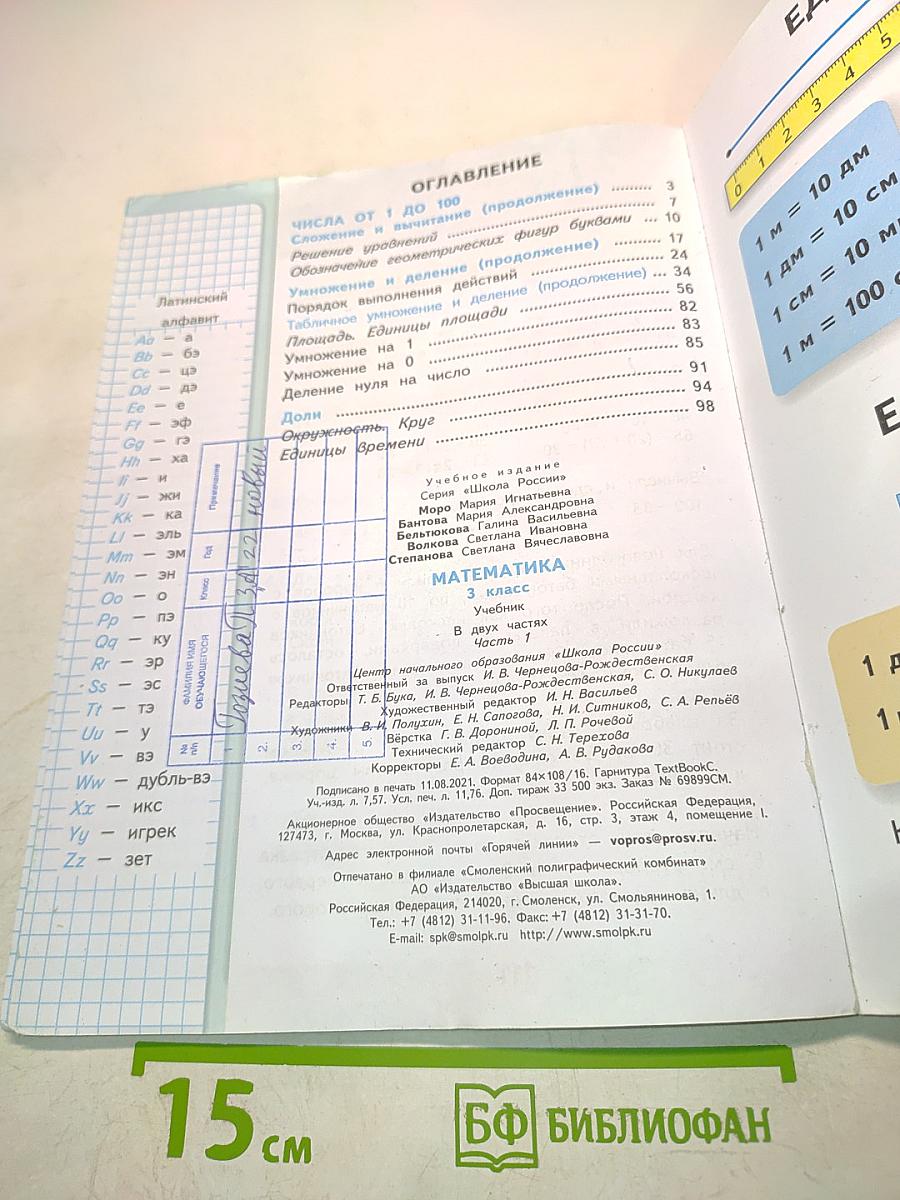 ОГЛАВЛЕНИЕ
ЧИСЛА ОТ 1 ДО 100
Сложение и вычитание (продолжение) ......... 3
Решение уравнений ......... 7
Обозначение геометрических фигур буквами ... 10
Умножение и деление (продолжение) ......... 17
Порядок выполнения действий ......... 24
Табличное умножение и деление (продолжение) ... 34
Площадь. Единицы площади ......... 56
Умножение на 1 ......... 82
Умножение на 0 ......... 83
Деление нуля на число ......... 85
Доли ......... 91
Окружность. Круг ......... 94
Единицы времени ......... 98
Учебное издание
Серия «Школа России»
Моро Мария Игнатьевна
Бантова Мария Александровна
Бельтюкова Галина Васильевна
Волкова Светлана Ивановна
Степанова Светлана Вячеславовна
МАТЕМАТИКА
3 класс
Учебник
В двух частях
Часть 1
Центр начального образования «Школа России»
Ответственный за выпуск И. В. Чернецова-Рождественская
Редакторы Т. Б. Бука, И. В. Чернецова-Рождественская, С. О. Никулаев
Художественный редактор И. Н. Васильев
Художники В. И. Полухин, Е. Н. Сапогова, Н. И. Ситников, С. А. Репьёв
Вёрстка Г. В. Дорониной, Л. П. Рочевой
Технический редактор С. Н. Терехова
Корректоры Е. А. Воеводина, А. В. Рудакова
Подписано в печать 11.08.2021. Формат 84×108/16. Гарнитура TextBookC.
Уч.-изд. л. 7,57. Усл. печ. л. 11,76. Доп. тираж 33 500 экз. Заказ № 69899СМ.
Акционерное общество «Издательство «Просвещение». Российская Федерация,
127473, г. Москва, ул. Краснопролетарская, д. 16, стр. 3, этаж 4, помещение I.
Адрес электронной почты «Горячей линии» — vopros@prosv.ru.
Отпечатано в филиале «Смоленский полиграфический комбинат»
АО «Издательство «Высшая школа».
Российская Федерация, 214020, г. Смоленск, ул. Смольянинова, 1.
Тел.: +7 (4812) 31-11-96. Факс: +7 (4812) 31-31-70.
E-mail: spk@smolpk.ru http://www.smolpk.ru
Латинский
алфавит
Aa — а
Bb — бэ
Cc — цэ
Dd — дэ
Ee — е
Ff — эф
Gg — гэ
Hh — ха
Ii — и
Jj — жи
Kk — ка
Ll — эль
Mm — эм
Nn — эн
Oo — о
Pp — пэ
Qq — ку
Rr — эр
Ss — эс
Tt — тэ
Uu — у
Vv — вэ
Ww — дубль-вэ
Xx — икс
Yy — игрек
Zz — зет
№ п/п
ФАМИЛИЯ ИМЯ
ОБУЧАЮЩЕГОСЯ
Класс
Год
Примечание
1
3А 22 новый
2.
3.
4.
5.
0 1 2 3 4 5
1 м = 10 дм
1 дм = 10 см
1 см = 10 м
1 м = 100
15 см
БФ БИБЛИОФАН